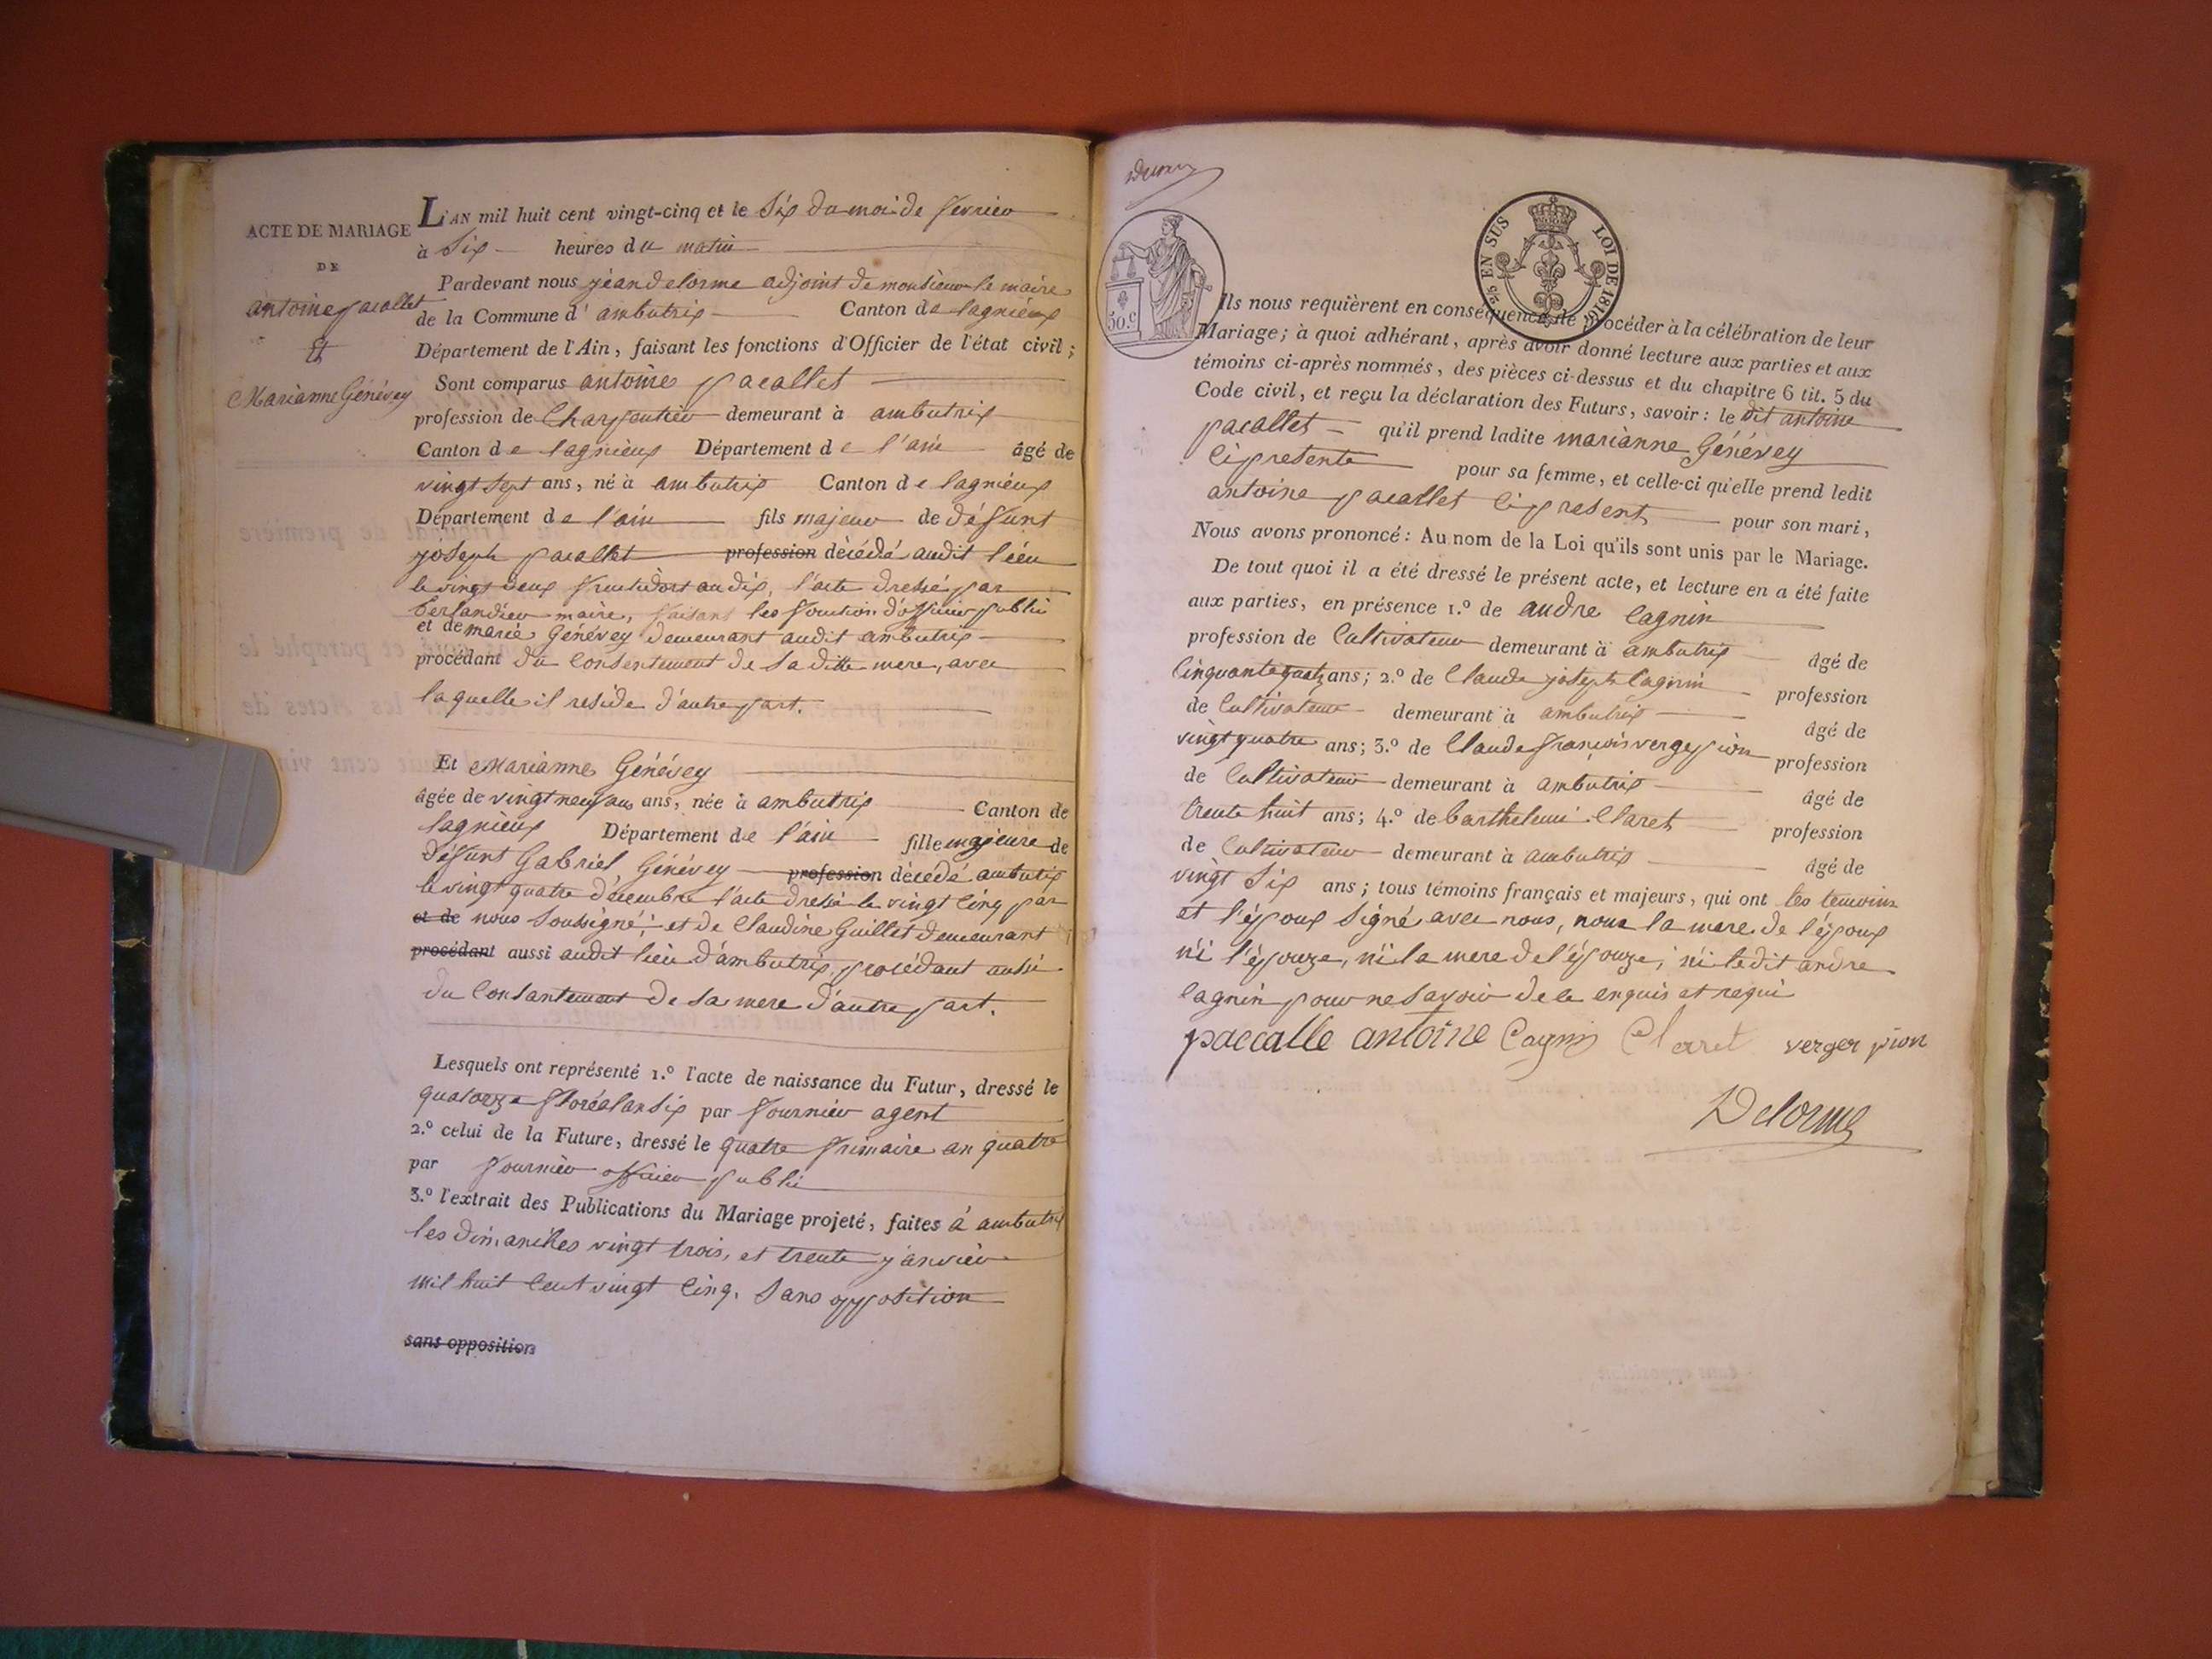 ACTE DE MARIAGE
DE
antoine pacallet
Et
Marianne Génévey
L'AN mil huit cent vingt-cinq et le Six du moi de fevrier
à Six heures du matin
Pardevant nous jéan delorme adjoint de monsieur le maire
de la Commune d'ambutrix Canton de lagnieux
Département de l'Ain, faisant les fonctions d'Officier de l'état civil;
Sont comparus antoine pacallet
profession de Charpentier demeurant à ambutrix
Canton de lagnieux Département de l'ain âgé de
vingt Sept ans, né à ambutrix Canton de lagnieux
Département de l'ain fils majeur de défunt
joseph pacallet profession décédé audit lieu
le vingt deux fructidor an dix, l'acte dressé par
berlandieu maire, faisant les fonction d'officier public
et de marie Génévey demeurant audit ambutrix
procédant du Consentement de Sa ditte mere, avec
laquelle il reside d'autre part.
Et Marianne Génévey
âgée de vingt neuf ans ans, née à ambutrix Canton de
lagnieux Département de l'ain fille majeure de
défunt Gabriel Génévey profession décédé ambutrix
le vingt quatre décembre l'acte dressé le vingt Cinq par
et de nous Soussigné; et de Claudine Guillet demeurant
procédant aussi audit lieu d'ambutrix, procédant aussi
du Consantement de Sa mere d'autre part.
Lesquels ont représenté 1.º l'acte de naissance du Futur, dressé le
quatorze floréal an Six par fournier agent
2.º celui de la Future, dressé le quatre frimaire an quatre
par fournier officier publi
3.º l'extrait des Publications du Mariage projeté, faites à ambutrix
les dimanches vingt trois, et trente janvier
mil huit Cent vingt Cinq. Sans opposition
sans opposition
50.c
25 EN SUS LOI DE 1816
Ils nous requièrent en conséquence de procéder à la célébration de leur
Mariage; à quoi adhérant, après avoir donné lecture aux parties et aux
témoins ci-après nommés, des pièces ci-dessus et du chapitre 6 tit. 5 du
Code civil, et reçu la déclaration des Futurs, savoir: le dit antoine
pacallet qu'il prend ladite marianne Génévey
Ci presente pour sa femme, et celle-ci qu'elle prend ledit
antoine pacallet Ci present pour son mari,
Nous avons prononcé: Au nom de la Loi qu'ils sont unis par le Mariage.
De tout quoi il a été dressé le présent acte, et lecture en a été faite
aux parties, en présence 1.º de andre Cagnin
profession de Cultivateur demeurant à ambutrix âgé de
Cinquante quatre ans; 2.º de Claude joseph Cagnin profession
de Cultivateur demeurant à ambutrix âgé de
vingt quatre ans; 3.º de Claude françois vergerpion profession
de Cultivateur demeurant à ambutrix âgé de
trente huit ans; 4.º de barthelemi Claret profession
de Cultivateur demeurant à ambutrix âgé de
vingt Six ans; tous témoins français et majeurs, qui ont les temoins
et l'époux Signé avec nous, non la mere de l'époux
ni l'épouze, ni la mere de l'épouze, ni le dit andre
Cagnin pour ne Savoir de ce enquis et requi
paccalle antoine Cagnin Claret verger pion
Delorme